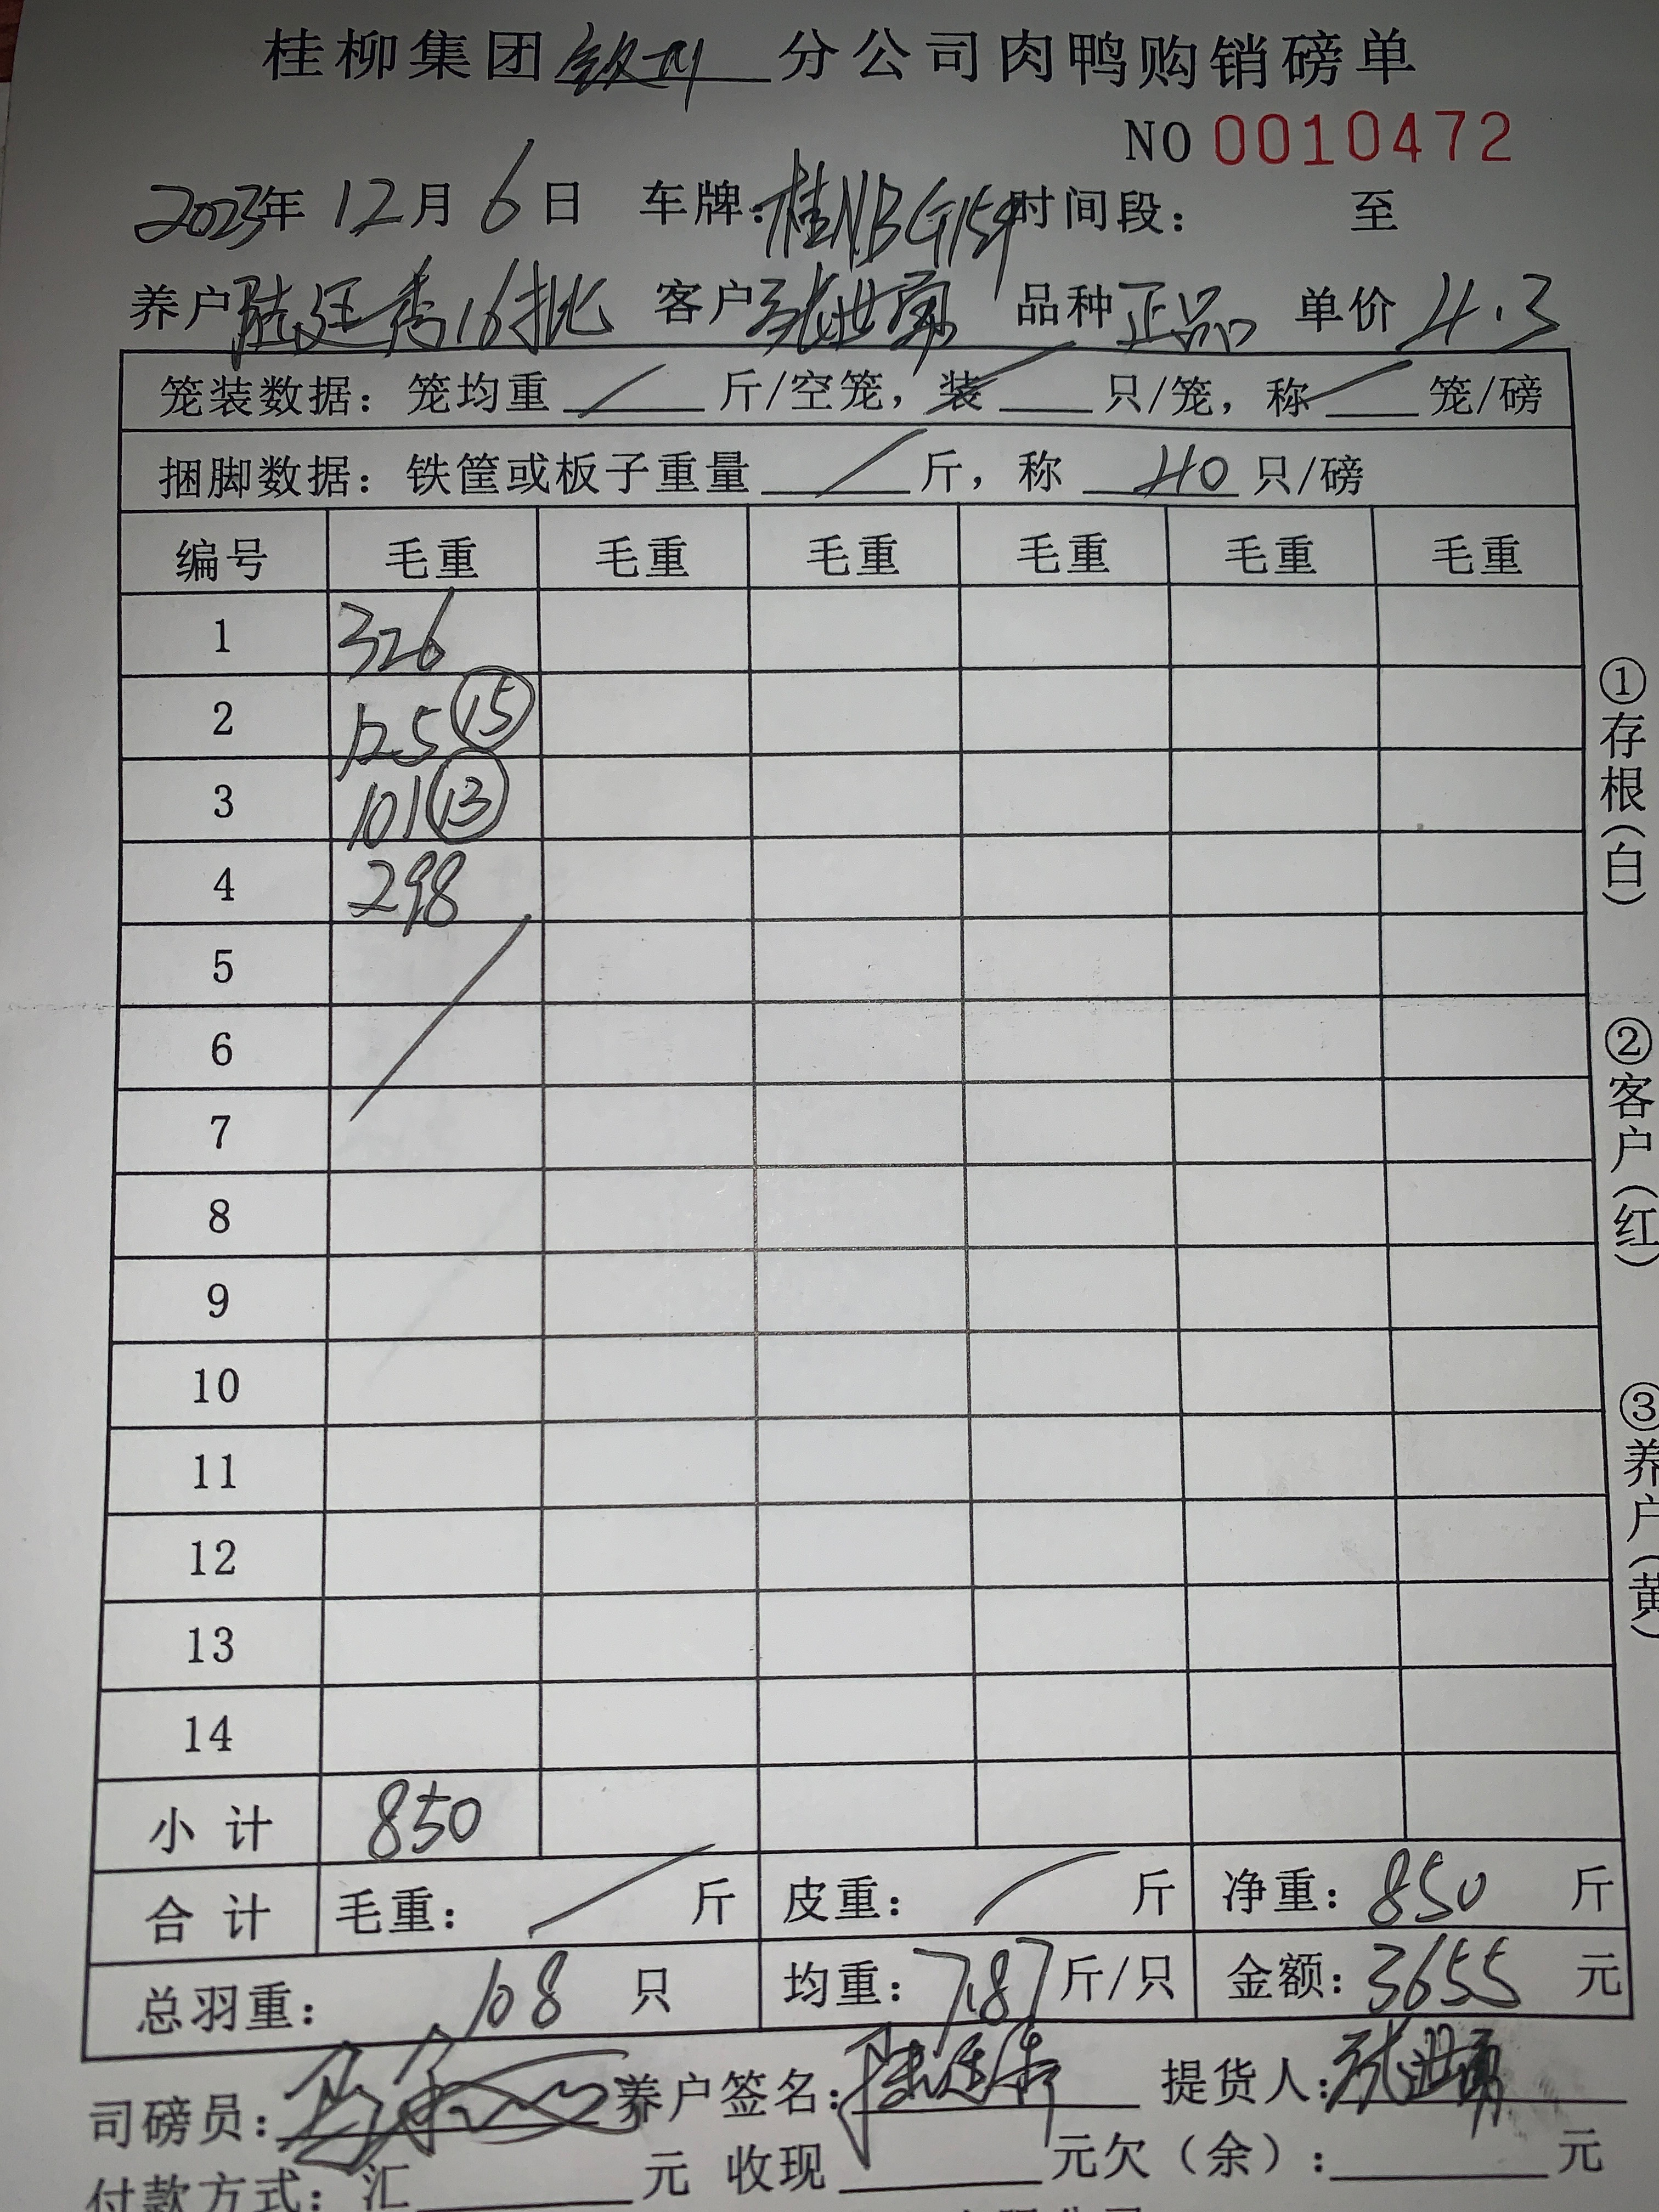 桂柳集团钦州分公司肉鸭购销磅单
NO 0010472
2023年 12月 6日 车牌:桂NBG159 时间段: 至
养户 陆廷秀16批 客户 张世勇 品种 正品 单价 4.3
笼装数据: 笼均重 / 斤/空笼, 装 / 只/笼, 称 / 笼/磅
捆脚数据: 铁筐或板子重量 / 斤, 称 40 只/磅
编号 毛重 毛重 毛重 毛重 毛重 毛重
1 326
2 125 ⑮
3 101 ⑬
4 298
5
6
7
8
9
10
11
12
13
14
小计 850
合计 毛重: / 斤 皮重: / 斤 净重: 850 斤
总羽重: 108 只 均重: 7.87 斤/只 金额: 3655 元
司磅员: 养户签名: 提货人: 张世勇
付款方式: 汇 元 收现 元欠(余): 元
①存根(白)
②客户(红)
③养户(黄)